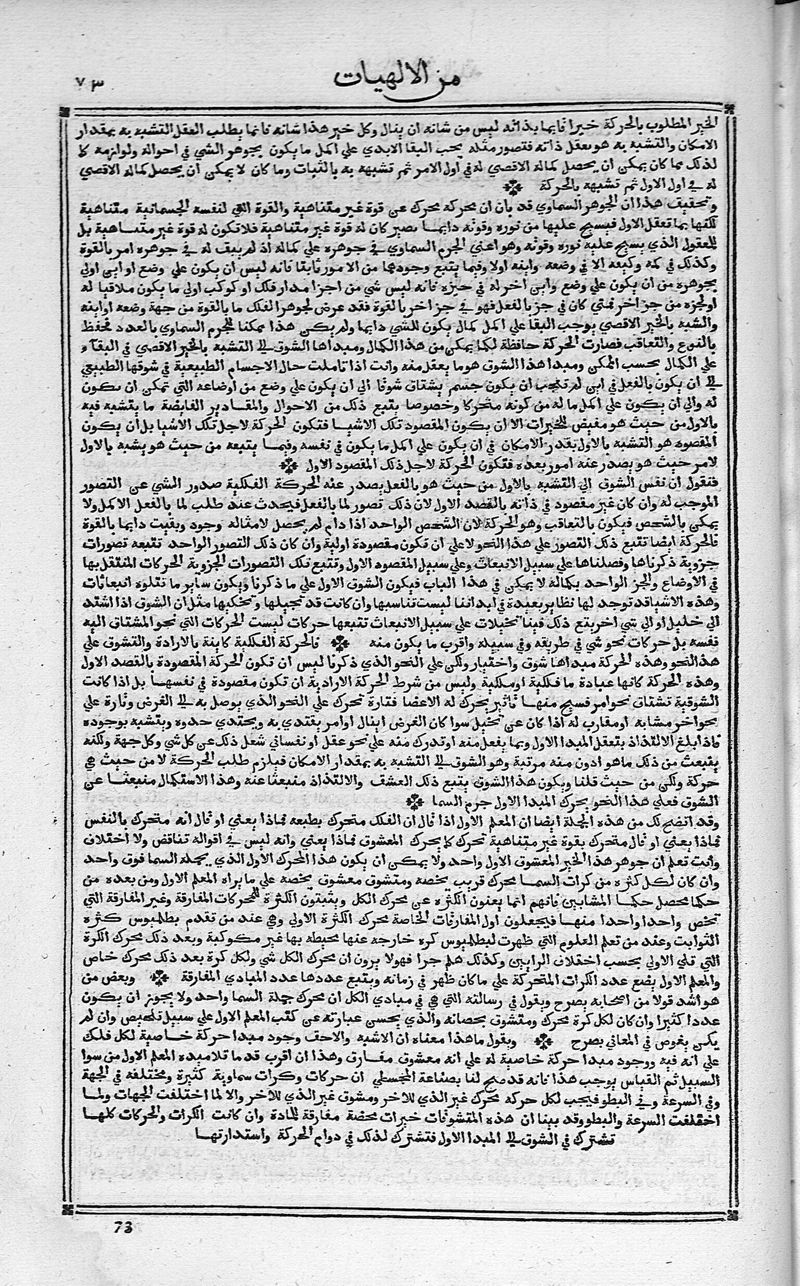 من الالهيات
٧٣
الخير المطلوب بالحركة خيرا قايما بذاته ليس من شانه ان ينال وكل خير هذا شانه فانما يطلب العقل التشبه به بمقدار
الامكان والتشبه به هو تعقل ذاته فتصور مثله يحب البقا الابدي علي اكمل ما يكون بجوهر الشي في احواله ولوازمه كا
لذلك مما كان يمكن ان يحصل كماله الاقصي له في اول الامر ثم تشبهه به بالثبات وما كان لا يمكن ان يحصل كماله الاقصي
له في اول الاول ثم تشبهه بالحركة
وتحقيف هذا ان الجوهر السماوي قد بان ان محركه يحرك عن قوة غير متناهية والقوة التي لنفسه الجسمانية متناهية
لكنها بما تعقل الاول فيسيح عليها من نوره وقوته دايما يصير كان له قوة غير متناهية فلا تكون له قوة غير متناهية بل
للمعقول الذي يسيح عليه نوره وقوته وهو اعني الجرم السماوي في جوهره علي كماله اذ لم يبف له في جوهره امر بالقوة
وكذلك في كمه وكيفه الا في وضعه واينه اولا وفيما يتبع وجودهما من الامور ثانيا فانه ليس ان يكون علي وضع او اين اولي
بجوهره من ان يكون علي وضع واين اخر له في حيزه فانه ليس شي من اجزا مدار فلك او كوكب اولي ما يكون ملاقيا له
او لجزه من جز اخر فمتي كان في جز بالفعل فهو في جز اخر بالقوة فقد عرض لجوهر الفلك ما بالقوة من جهة وضعه او اينه
والتشبه بالخير الاقصي يوجب البقا علي اكمل كمال يكون للشي دايما ولم يكن هذا ممكنا للجرم السماوي بالعدد فحفظ
بالنوع والتعاقب فصارت الحركة حافظة لما يمكن من هذا الكمال ومبداها الشوق الي التشبه بالخير الاقصي في البقاء
علي الكمال بحسب الممكن ومبدا هذا الشوق هو ما يعقل منه وانت اذا تاملت حال الاجسام الطبيعية في شوقها الطبيعي
الي ان يكون بالفعل في اين لم تتعجب ان يكون جسم يشتاق شوقا الي ان يكون علي وضع من اوضاعه التي تمكن ان تكون
له والي ان يكون علي اكمل ما له من كونه متحركا وخصوصا يتبع ذلك من الاحوال والمقادير الفايضة ما يتشبه فيه
بالاول من حيث هو مفيض للخيرات الا ان يكون المقصود تلك الاشيا فتكون الحركة لاجل تلك الاشيا بل ان يكون
المقصود هو التشبه بالاول بقدر الامكان في ان يكون علي اكمل ما يكون في نفسه وفيما يتبعه من حيث هو تشبه بالاول
لا من حيث هو يصدر عنه امور بعده فتكون الحركة لاجل ذلك المقصود الاول
فنقول ان نفس الشوق الي التشبه بالاول من حيث هو بالفعل يصدر عنه الحركة الفلكية صدور الشي عن التصور
الموجب له وان كان غير مقصود في ذاته بالقصد الاول لان ذلك تصور لما بالفعل فيحدث عند طلب لما بالفعل الاكمل ولا
يمكن بالشخص فيكون بالتعاقب وهو الحركة لان الشخص الواحد اذا دام لم يحصل لامثاله وجود وبقيت دايما بالقوة
فالحركة ايضا تتبع ذلك التصور علي هذا النحو لا علي ان تكون مقصودة اولية وان كان ذلك التصور الواحد تتبعه تصورات
جزوية ذكرناها وفصلناها علي سبيل الانبعاث وعلي سبيل المقصود الاول وتتبع تلك التصورات الجزوية الحركات المنتقل بها
في الاوضاع والجز الواحد بكماله لا يمكن في هذا الباب فيكون الشوق الاول علي ما ذكرنا ويكون ساير ما تتلوه انبعاثات
وهذه الاشيا قد توجد لها نظاير بعيدة في ابداننا ليست تناسبها وان كانت قد تحيلها وتحكيها مثل ان الشوق اذا اشتد
الي خليل او الي شي اخر يتبع ذلك فينا تخيلات علي سبيل الانبعاث تتبعها حركات ليست الحركات التي نحو المشتاق اليه
نفسه بل حركات نحو شي في طريقه وفي سبيله واقرب ما يكون منه فالحركة الفلكية كاينة بالارادة والتشوق علي
هذا النحو وهذه الحركة مبداها شوق واختيار ولكن علي النحو الذي ذكرنا ليس ان تكون الحركة المقصودة بالقصد الاول
وهذه الحركة كانها عبادة ما فلكية او ملكية وليس من شرط الحركة الارادية ان تكون مقصودة في نفسها بل اذا كانت
الشوقية تشتاق نحو امر فسيح منها تاثير يحرك له الاعضا فتارة تحرك علي النحو الذي يوصل به الي الغرض وتارة علي
نحو اخر مشابه او مقارب له اذا كان عن تخيل سوا كان الغرض اينال او امر يقتدي به ويحتذي حدوه ويتشبه بوجوده
فاذا بلغ الالتذاذ بتعقل المبدا الاول وبما يفعل منه او تدرك منه علي نحو عقلي او نفساني شغل ذلك عن كل شي وكل جهة ولكنه
ينبعث من ذلك ما هو ادون منه مرتبة وهو الشوق الي التشبه به بمقدار الامكان فيلزم طلب الحركة لا من حيث هي
حركة ولكن من حيث قلنا ويكون هذا الشوق يتبع ذلك العشق والالتذاذ منبعثا عنه وهذا الاستكمال منبعثا عن
الشوق فعلي هذا النحو يحرك المبدا الاول جرم السما
وقد اتضح لك من هذه الجملة ايضا ان المعلم الاول اذا قال ان الفلك متحرك بطبعه فماذا يعني او قال انه متحرك بالنفس
فماذا يعني او قال متحرك بقوة غير متناهية تحرك كما يحرك المعشوق فماذا يعني وانه ليس في اقواله تناقض ولا اختلاف
وانت تعلم ان جوهر هذا الخير المعشوق الاول واحد ولا يمكن ان يكون هذا المحرك الاول الذي لجملة السما فوق واحد
وان كان لكل كثرة من كرات السما محرك قريب يخصه ومتشوق معشوق يخصه علي ما يراه المعلم الاول ومن بعده من
حكما محصل حكما المشايين فانهم انما ينفون الكثرة عن محرك الكل ويثبتون الكثرة للمحركات المفارقة وغير المفارقة التي
تخص واحدا واحدا منها فيجعلون اول المفارقات الخاصة محرك الكثرة الاولي وهي عند من تقدم بطلميوس كثره
الثوابت وعند من تعلم العلوم التي ظهرت لبطلميوس كره خارجه عنها محيطه بها غير مكوكبة وبعد ذلك محرك الكرة
التي تلي الاولي بحسب اختلاف الرايين وكذلك هلم جرا فهولا يرون ان محرك الكل شي ولكل كرة بعد ذلك محرك خاص
والمعلم الاول يضع عدد الكرات المتحركة علي ما كان ظهر في زمانه ويتبع عددها عدد المبادي المفارقة وبعض من
هو اشد قولا من اصحابه يصرح ويقول في رسالته التي هي في مبادي الكل ان محرك جملة السما واحد ولا يجوز ان يكون
عددا كثيرا وان كان لكل كرة محرك ومتشوق يخصانه والذي يحسن عبارته عن كتب المعلم الاول علي سبيل تلخيص وان لم
يكن يغوص في المعاني يصرح ويقول ما هذا معناه ان الاشبه والاحق وجود مبدا حركة خاصية لكل فلك
علي انه فيه ووجود مبدا حركة خاصية له علي انه معشوق مفارق وهذا ان اقرب قد ما تلاميذه المعلم الاول من سوا
السبيل ثم القياس يوجب هذا فانه قد صح لنا بصناعة المجسطي ان حركات وكرات سماوية كثيرة ومختلفه في الجهة
وفي السرعة وفي البطو فيجب لكل حركه محرك غير الذي للاخر ومشوق غير الذي للاخر والا لما اختلفت الجهات ولما
اختلفت السرعة والبطو وقد بينا ان هذه المتشوقات خيرات محضة مفارقة للمادة وان كانت الكرات والحركات كلها
تشترك في الشوق الي المبدا الاول فتشترك لذلك في دوام الحركة واستدارتها
73